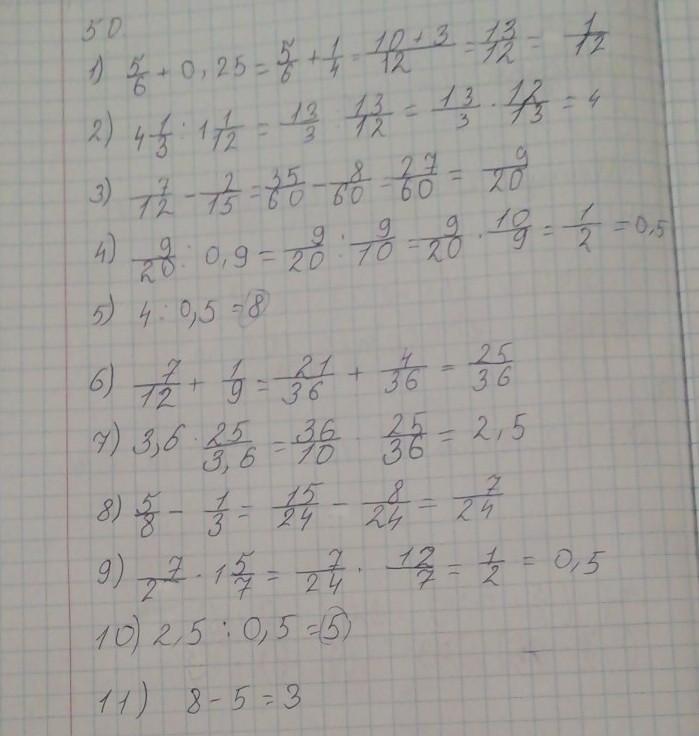 50
1) 5/6 + 0,25 = 5/6 + 1/4 = 10+3/12 = 13/12 = 1/12
2) 4 1/3 : 1 1/12 = 13/3 13/12 = 13/3 · 12/13 = 4
3) 7/12 - 2/15 = 35/60 - 8/60 = 27/60 = 9/20
4) 9/20 : 0,9 = 9/20 : 9/10 = 9/20 · 10/9 = 1/2 = 0,5
5) 4 : 0,5 = 8
6) 7/12 + 1/9 = 21/36 + 4/36 = 25/36
7) 3,6 · 25/3,6 = 36/10 · 25/36 = 2,5
8) 5/8 - 1/3 = 15/24 - 8/24 = 7/24
9) 7/2 · 1 5/7 = 7/24 · 12/7 = 1/2 = 0,5
10) 2,5 : 0,5 = 5
11) 8 - 5 = 3